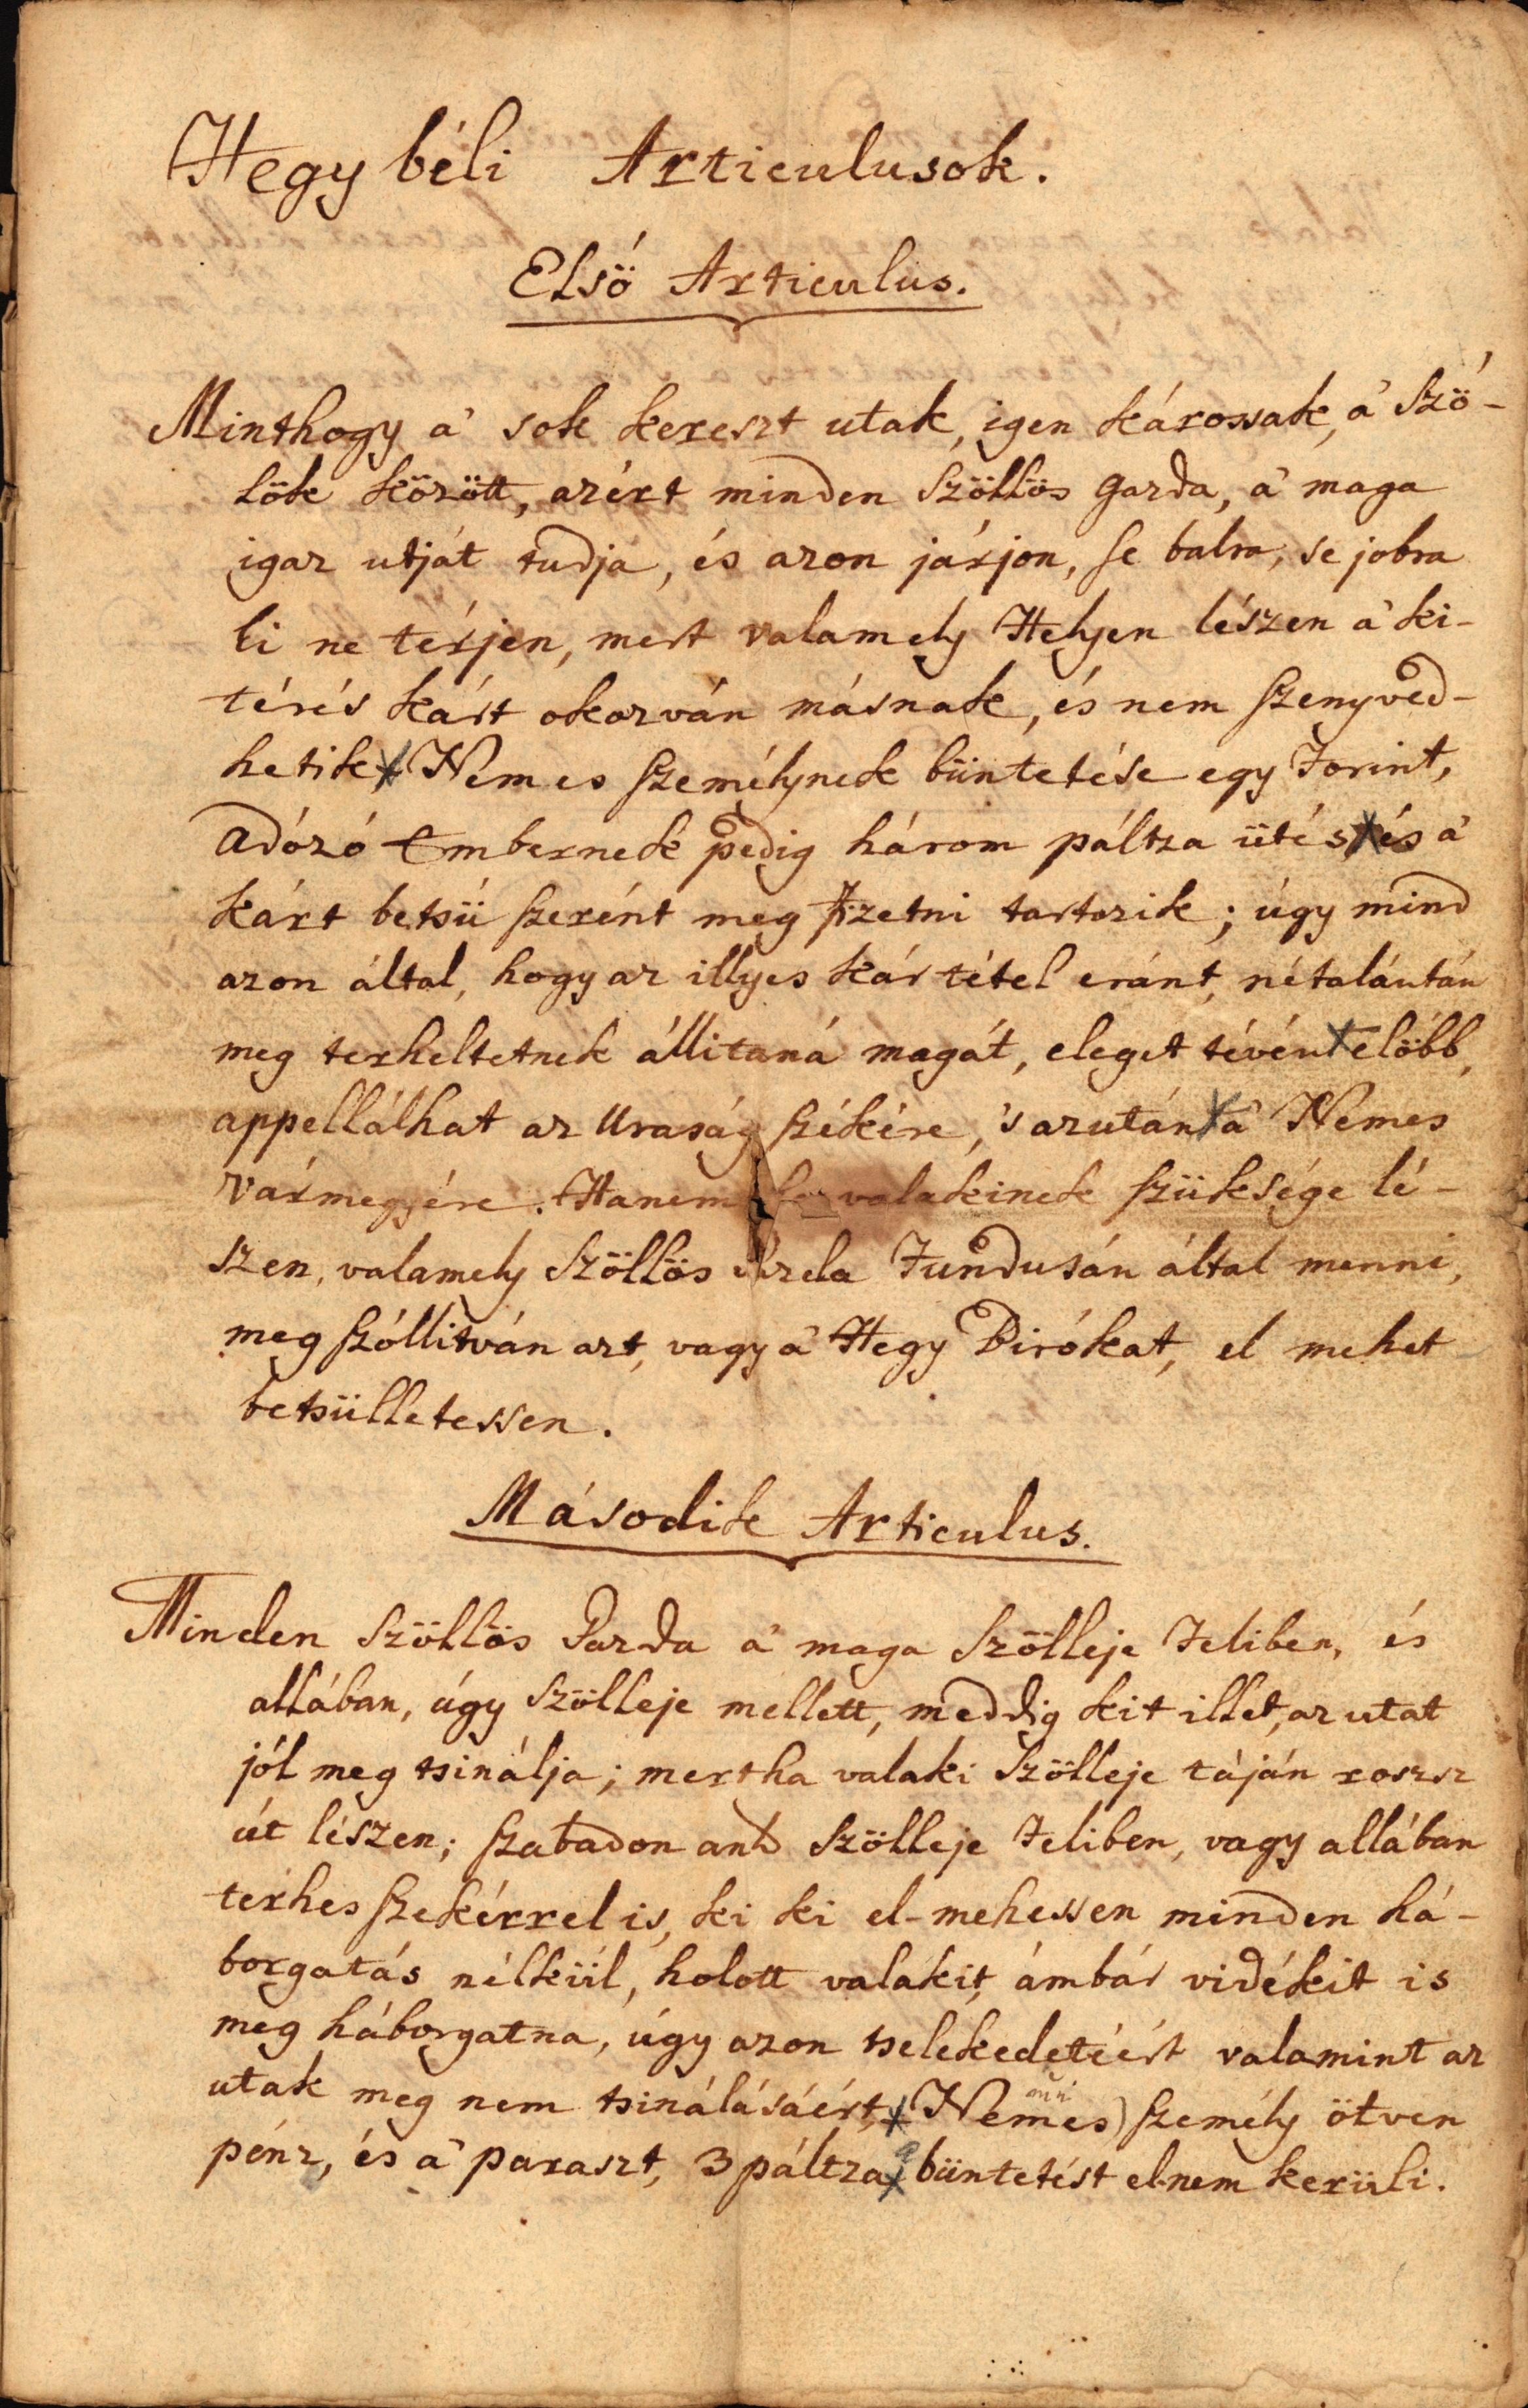 Hegy béli Articulusok.
Elsö Articulus.
Minthogy a' sok kereszt utak, igen károssak, a' Szö-
lök között, azért minden Szöllös Gazda, a' maga
igaz utját tudja, és azon járjon, se balra, se jobra
ki ne térjen, mert valamely Helyen lészen a' ki-
térés kárt okozván másnak, és nem szenyved-
hetik Nemes személynek büntetése egy Forint,
adózó Embernek pedig három páltza ütés és a'
kárt betsü szerént meg fizetni tartozik; úgy mind
azon által, hogy az illyes kár tétel eránt, nétalántán
meg terheltetnek állitaná magát, eleget tévén elöbb,
appellálhat az Uraság székére, 's azután a' Nemes
Vármegyére. Hanem ha valakinek szüksége lé-
szen, valamely Szöllös Gazda Fundusán által menni,
meg szóllitván azt, vagy a' Hegy Birókat, el mehet
betsülletessen.
Második Articulus.
Minden Szöllös Gazda a' maga Szölleje Feliben, és
allában, úgy Szölleje mellett, meddig kit illet, az utat
jól meg tsinálja; mert ha valaki Szölleje táján roszsz
út lészen; szabadon an̄ Szölleje Feliben, vagy allában
terhes szekérrel is, ki ki el-mehessen minden há-
borgatás nélkül, holott valakit, ámbár vidékit is
meg háborgatna, úgy azon tselekedetéért valamint az
utak meg nem tsinálásáért, Nemes) személy ötven
pénz, és a' paraszt, 3 páltza büntetést el nem kerüli.